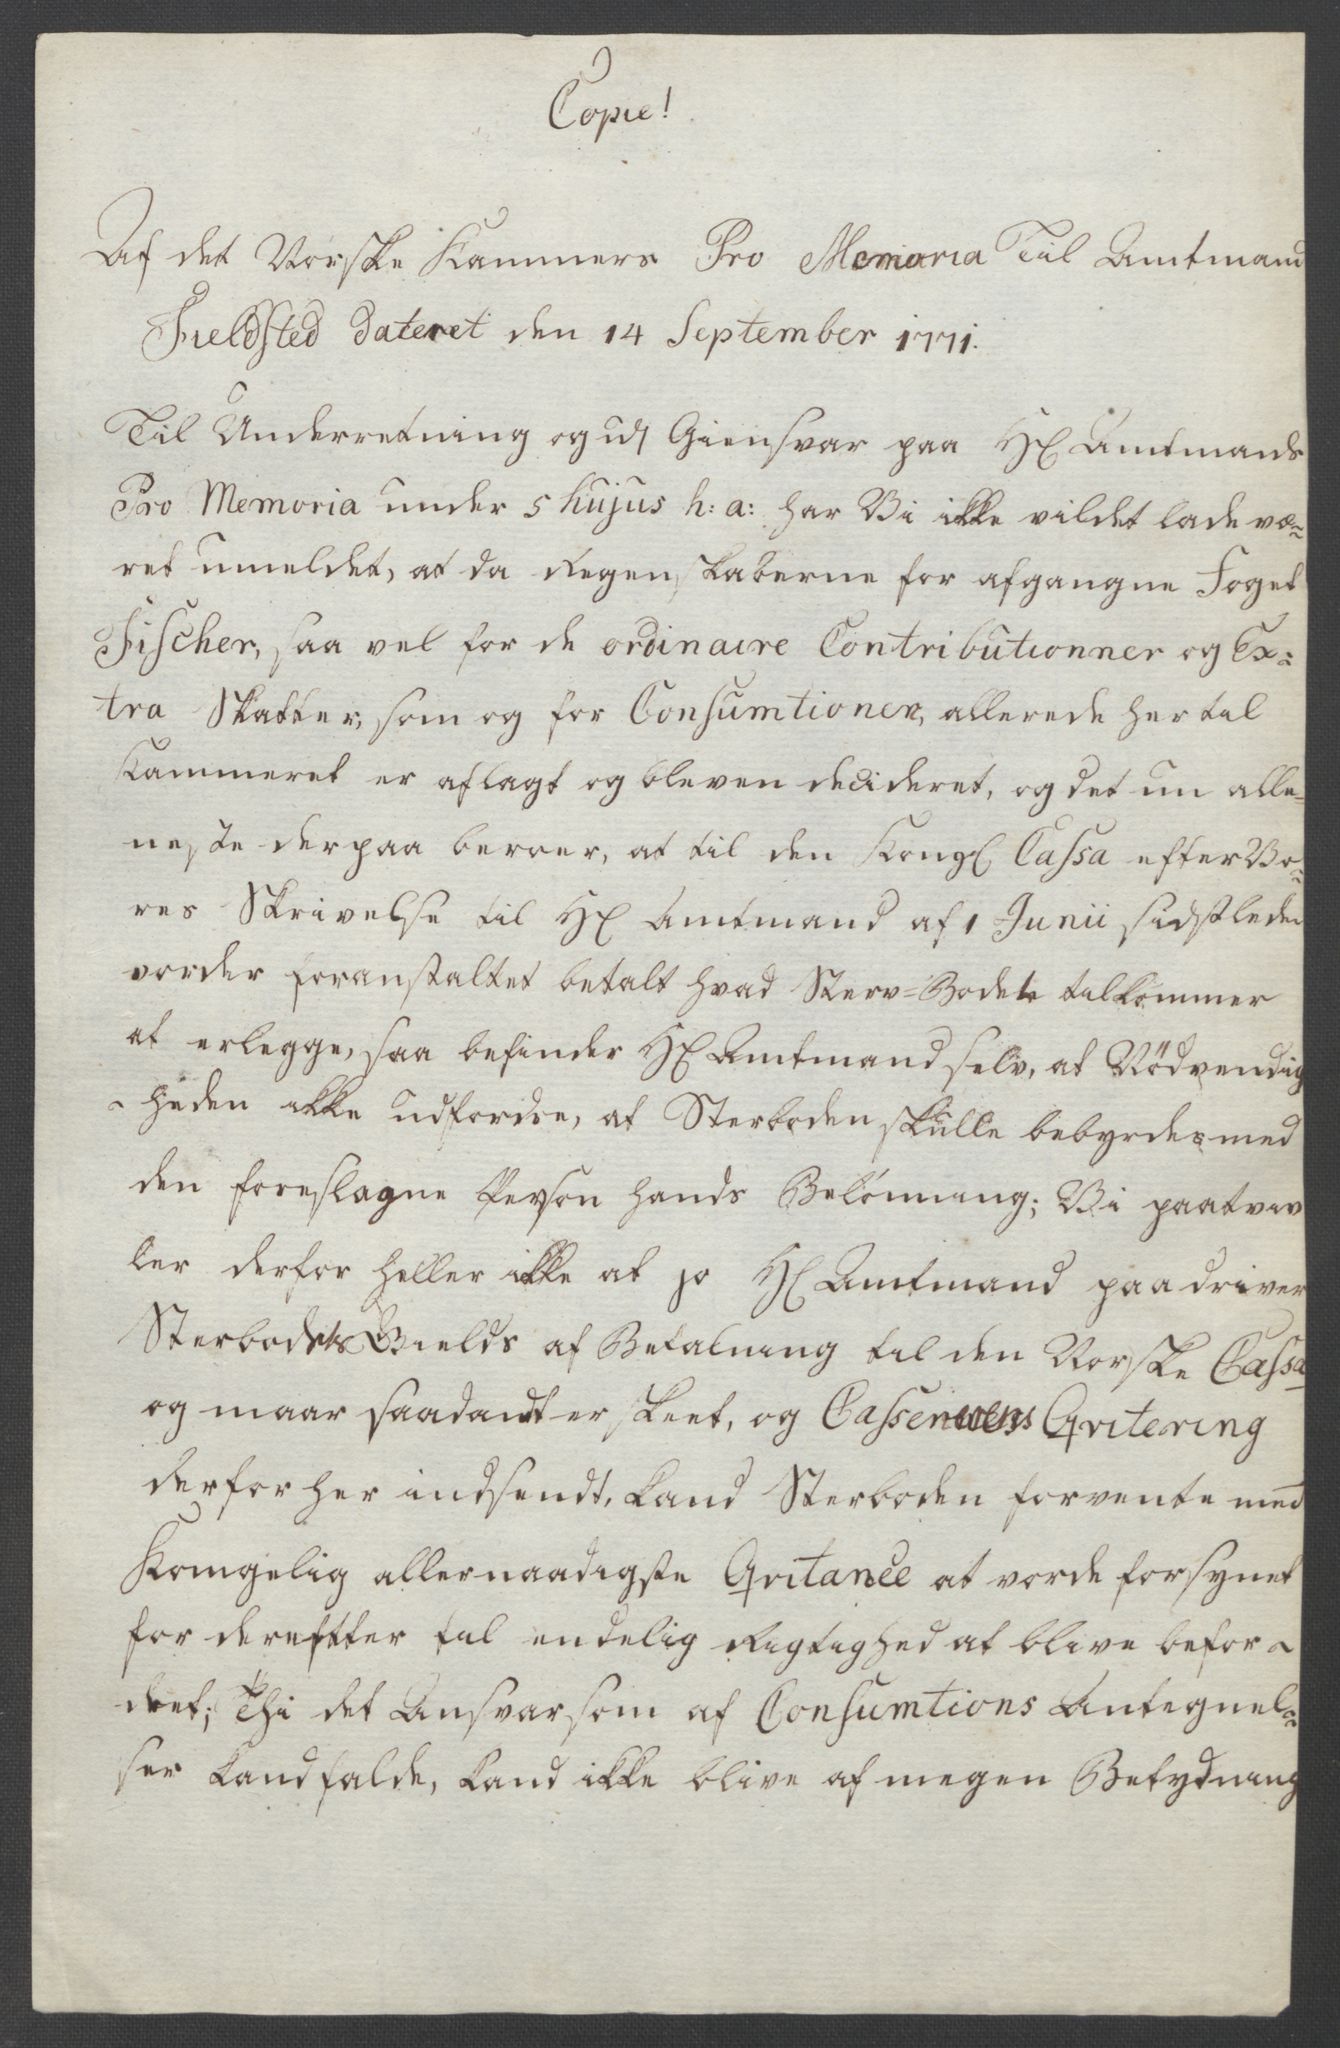 Copie!
Af det Norske Kammers Pro Memoria Til Amtmand
Fieldsted dateret den 14 September 1771.
Til Underretning og udj Giensvar paa Hr Amtmands
Pro Memoria under 5 hujus h: a: har Vi ikke vildet lade væ=
ret umeldet, at da Regenskaberne for afgangne Foget
Fischer, saa vel for de ordinaire Contributionner og Ex=
tra Skatter, som og for Consumtionen, allerede her til
Kammeret er aflagt og bleven decideret, og det nu alle=
neste derpaa beroer, at til den Kongl Cassa efter Vo=
res Skrivelse til Hr Amtmand af 1 Junii sidstleden
vorder foranstaltet betalt hvad Sterv=Bodet tilkommer
at erlegge, saa befinder Hr Amtmand selv, at Nödvendig
=heden ikke udfordre, at Sterboden skulle bebyrdes med
den foreslagne Person hands Belönning; Vi paatviv
ler derfor heller ikke at jo Hr Amtmand paadriver
Sterbodets Gields af Betalning til den Norske Cassa
og naar saadant er skeet, og Cassererens Qvitering
derfor her indsendt, kand Sterboden forvente med
Kongelig allernaadigste Qvitance at vorde forsynet
for derefter til endelig Rigtighed at blive befor=
dret; Thi det Ansvar som af Consumtions Antegnel=
ser kand falde, kand ikke blive af megen Betydning